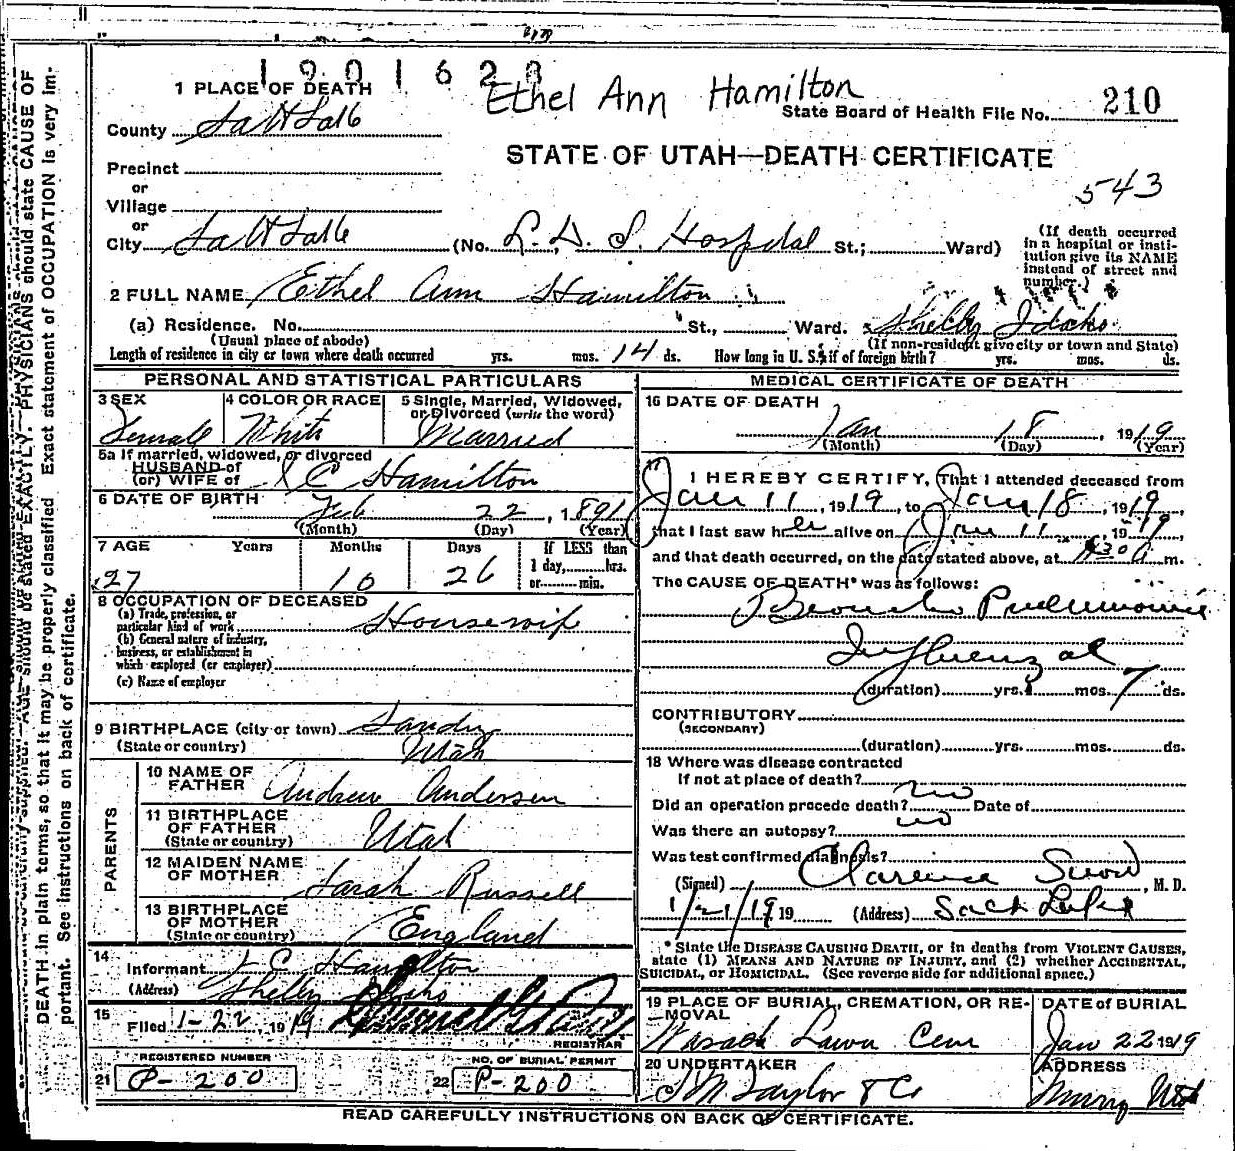 1901628
Ethel Ann Hamilton
1 PLACE OF DEATH
State Board of Health File No. 210
County Salt Lake
STATE OF UTAH—DEATH CERTIFICATE
Precinct
543
or
Village
or
City Salt Lake (No. L. D. S. Hospital St.; Ward)
(If death occurred in a hospital or institution give its NAME instead of street and number.)
2 FULL NAME Ethel Ann Hamilton
(a) Residence. No. St., Ward. Shelly Idaho
(Usual place of abode) (If non-resident give city or town and State)
Length of residence in city or town where death occurred yrs. mos. 14 ds. How long in U. S. if of foreign birth? yrs. mos. ds.
PERSONAL AND STATISTICAL PARTICULARS
3 SEX 4 COLOR OR RACE 5 Single, Married, Widowed, or Divorced (write the word)
Female White Married
5a If married, widowed, or divorced
HUSBAND of
(or) WIFE of C Hamilton
6 DATE OF BIRTH Feb 22, 1891
(Month) (Day) (Year)
7 AGE Years Months Days If LESS than
1 day, hrs.
27 10 26 or min.
8 OCCUPATION OF DECEASED
(a) Trade, profession, or
particular kind of work Housewife
(b) General nature of industry,
business, or establishment in
which employed (or employer)
(c) Name of employer
9 BIRTHPLACE (city or town) Sandy
(State or country) Utah
PARENTS
10 NAME OF
FATHER Andrew Andersen
11 BIRTHPLACE
OF FATHER
(State or country) Utah
12 MAIDEN NAME
OF MOTHER Sarah Russell
13 BIRTHPLACE
OF MOTHER
(State or country) England
14 Informant C Hamilton
(Address) Shelly Idaho
15 Filed 1-22, 1919
REGISTRAR
REGISTERED NUMBER NO. OF BURIAL PERMIT
21 P-200 22 P-200
MEDICAL CERTIFICATE OF DEATH
16 DATE OF DEATH
Jan 18, 1919
(Month) (Day) (Year)
17 I HEREBY CERTIFY, That I attended deceased from
Jan 11, 1919, to Jan 18, 1919,
that I last saw her alive on Jan 11, 1919,
and that death occurred, on the date stated above, at 30 a m.
The CAUSE OF DEATH* was as follows:
Broncho Pneumonia
Influenzal
(duration) yrs. mos. 7 ds.
CONTRIBUTORY
(SECONDARY)
(duration) yrs. mos. ds.
18 Where was disease contracted
If not at place of death?
Did an operation precede death? no Date of
Was there an autopsy? no
Was test confirmed diagnosis?
(Signed) Clarence Snow, M. D.
1/21/19 19 (Address) Salt Lake
* State the DISEASE CAUSING DEATH, or in deaths from VIOLENT CAUSES,
state (1) MEANS AND NATURE OF INJURY, and (2) whether ACCIDENTAL,
SUICIDAL, or HOMICIDAL. (See reverse side for additional space.)
19 PLACE OF BURIAL, CREMATION, OR RE- DATE of BURIAL
—MOVAL
Wasach Lawn Cem Jan 22 1919
20 UNDERTAKER ADDRESS
S M Taylor & Co Murray Utah
READ CAREFULLY INSTRUCTIONS ON BACK OF CERTIFICATE.
AGE should be stated EXACTLY. PHYSICIANS should state CAUSE OF
DEATH in plain terms, so that it may be properly classified Exact statement of OCCUPATION is very im-
portant. See instructions on back of certificate.